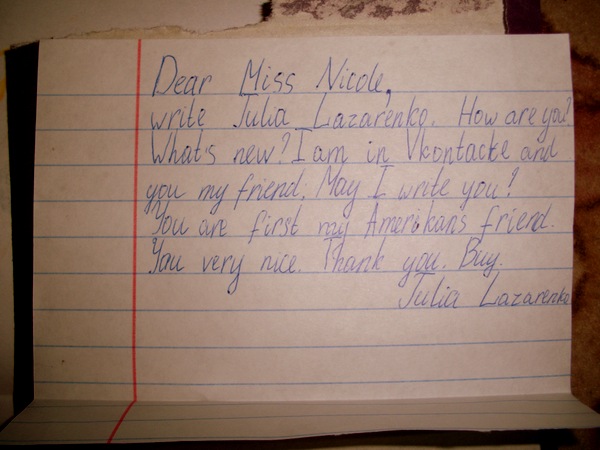 Dear Miss Nicole,
write Julia Lazarenko. How are you?
What's new? I am in Vkontackte and
you my friend. May I write you?
You are first my Amerikans friend.
You very nice. Thank you. Buy.
Julia Lazarenko